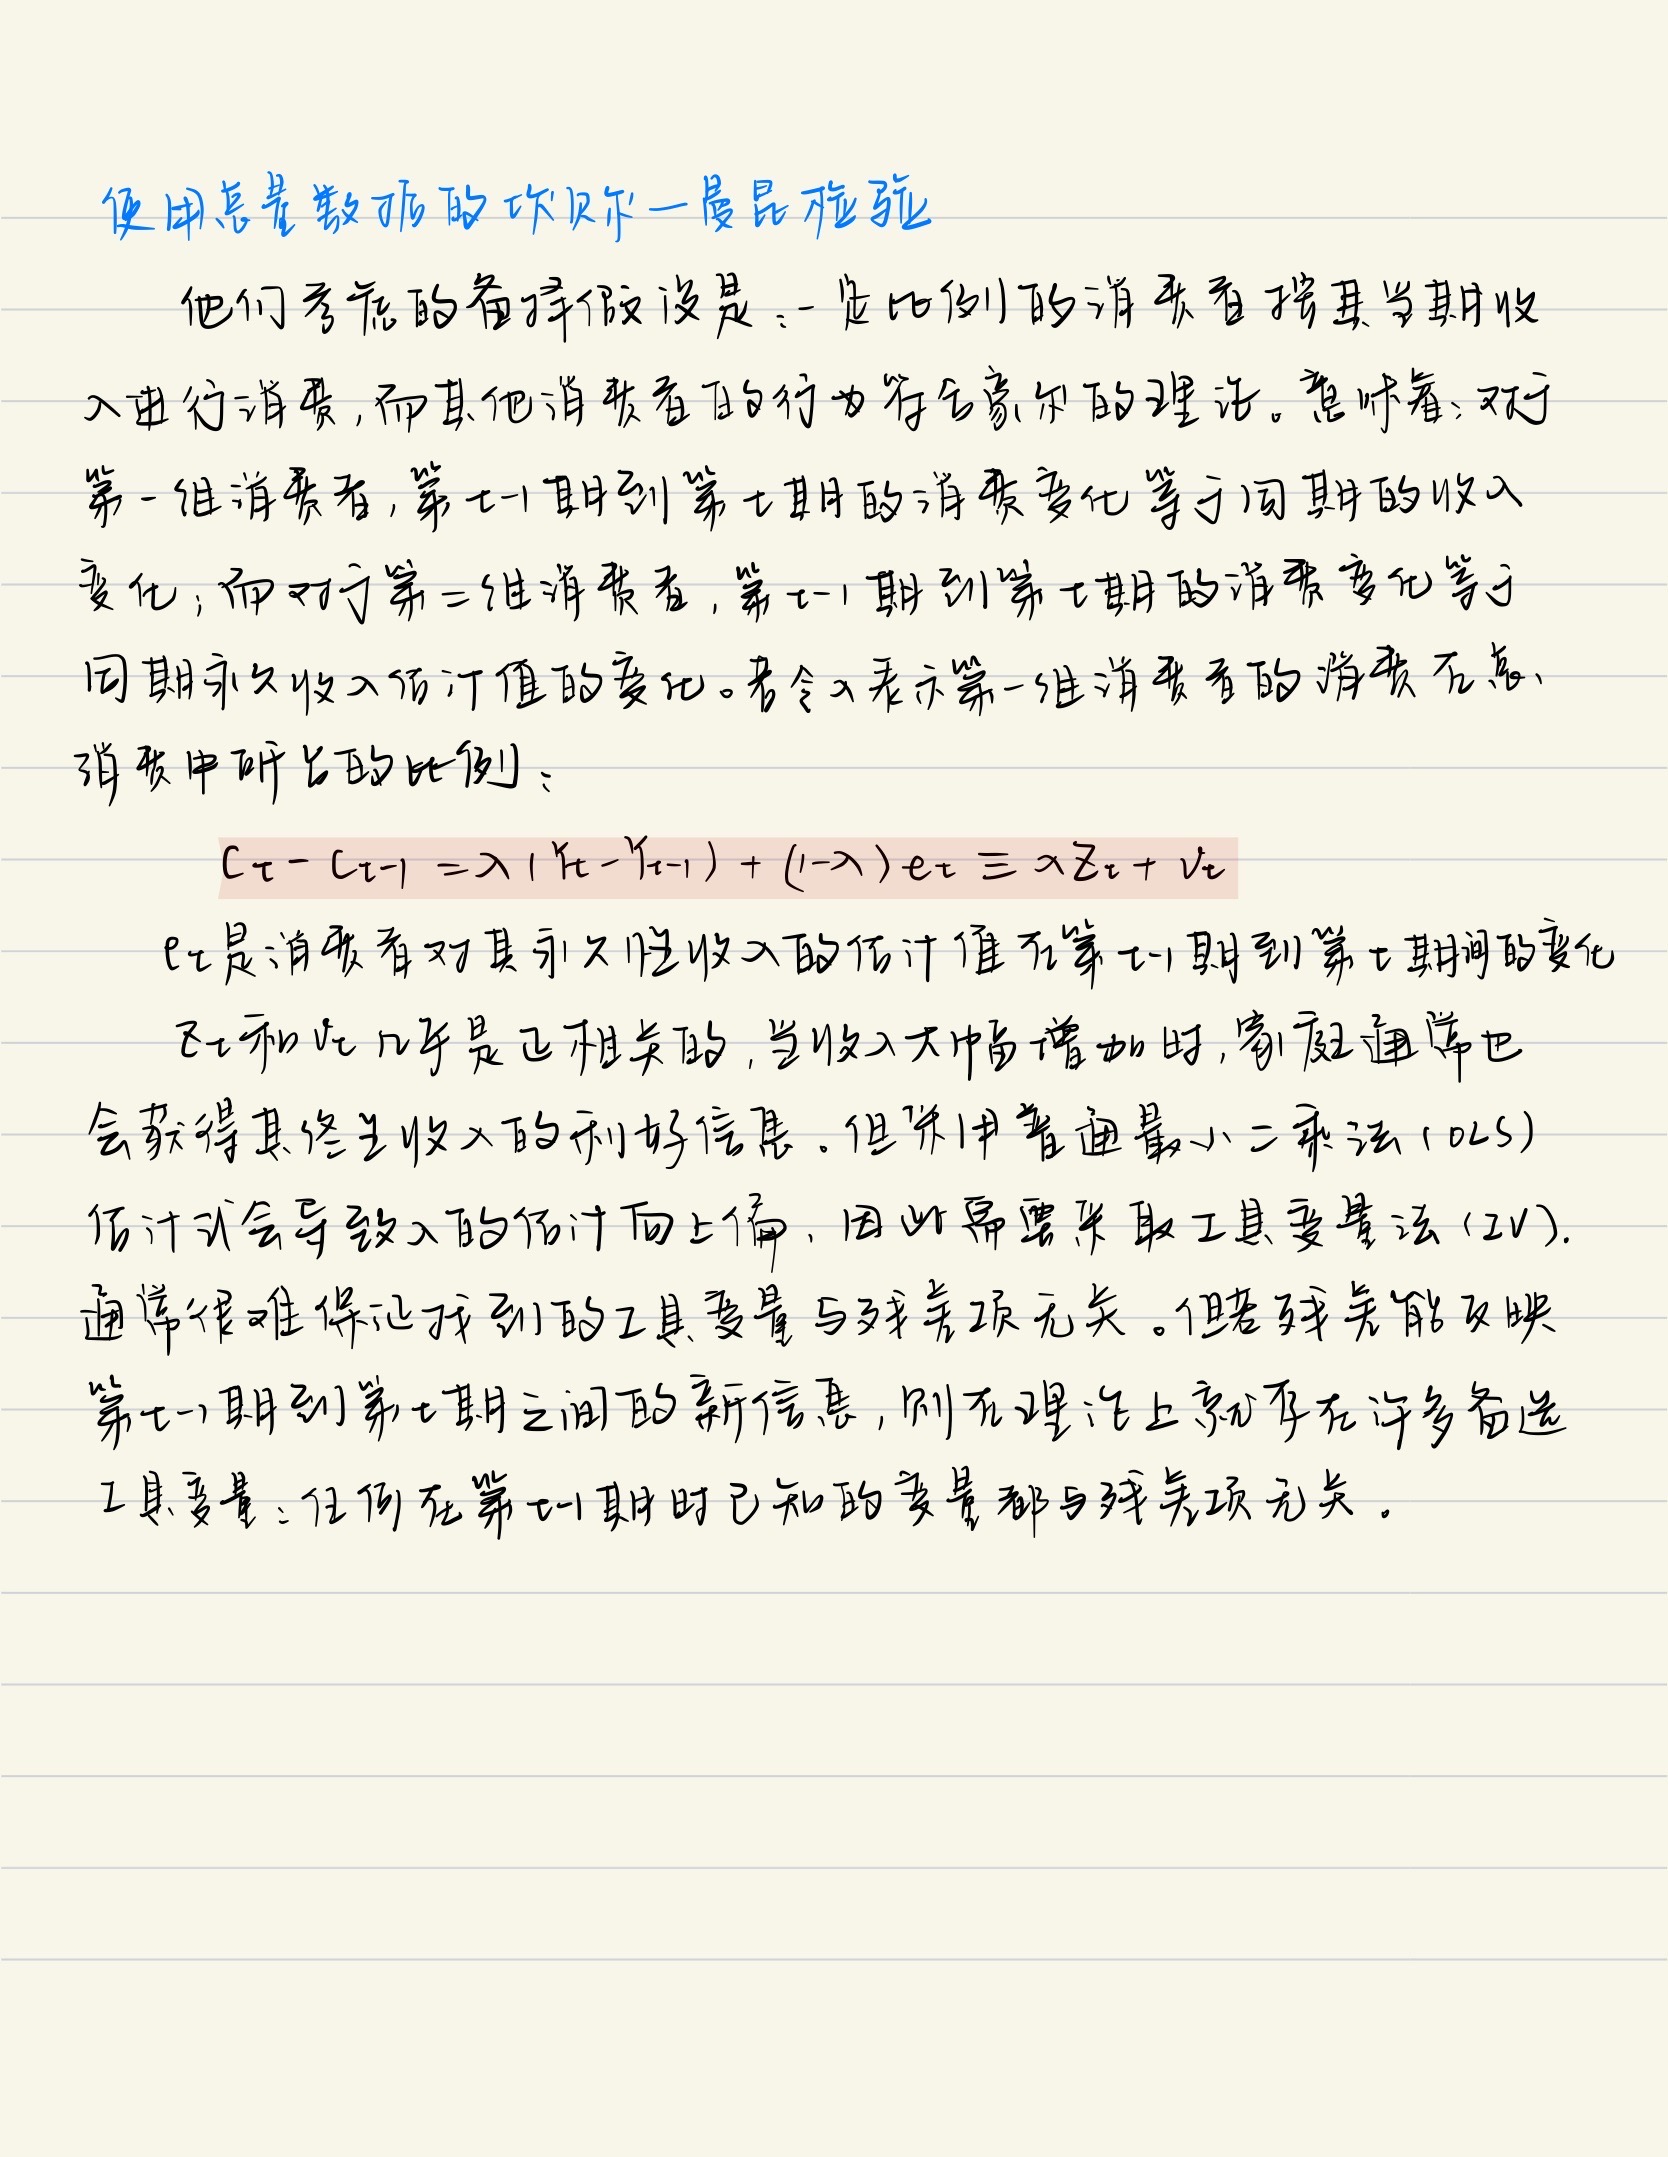 使用总量数据的坎贝尔一曼昆检验
他们考虑的备择假设是:一定比例的消费者按其当期收
入进行消费,而其他消费者的行为符合豪尔的理论。意味着:对于
第一组消费者,第t-1期到第t期的消费变化等于同期的收入
变化;而对于第二组消费者,第t-1期到第t期的消费变化等于
同期永久收入估计值的变化。若令λ表示第一组消费者的消费在总
消费中所占的比例:
Ct - Ct-1 = λ(Yt - Yt-1) + (1-λ)et ≡ λZt + Vt
et是消费者对其永久性收入的估计值在第t-1期到第t期间的变化
Zt和Vt几乎是正相关的,当收入大幅增加时,家庭通常也
会获得其终生收入的利好信息。但采用普通最小二乘法(OLS)
估计式会导致λ的估计向上偏,因此需要采取工具变量法(IV).
通常很难保证找到的工具变量与残差项无关。但若残差能反映
第t-1期到第t期之间的新信息,则在理论上就存在许多备选
工具变量:任何在第t-1期时已知的变量都与残差项无关。